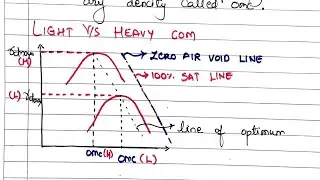 dry density called omc.
LIGHT V/S HEAVY COM
(H)
→ ZERO AIR VOID LINE
→ 100% SAT LINE
(L)
line of optimum
omc(H) omc(L)